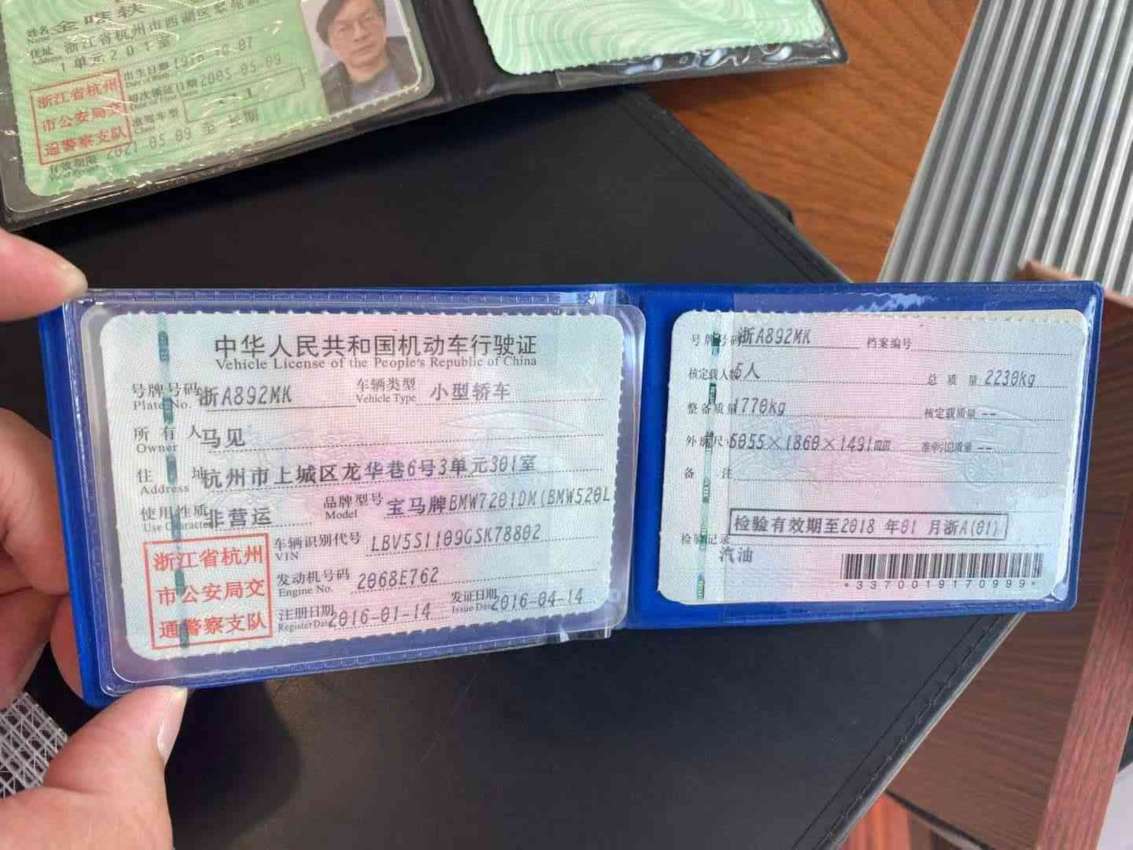 姓名 金晓秋
Name
住址 浙江省杭州市西湖区
Address
1单元201室
出生日期
初次领证日期 2005-05-09
准驾车型
Class
2021-05-09 至 长期
有效期限
浙江省杭州
市公安局交
通警察支队
中华人民共和国机动车行驶证
Vehicle License of the People's Republic of China
号牌号码 浙A892MK 车辆类型 小型轿车
Plate No. Vehicle Type
所有人 马见
Owner
住址 杭州市上城区龙华巷6号3单元301室
Address
使用性质 非营运 品牌型号 宝马牌BMW7201DM(BMW520L
Use Character Model
浙江省杭州
市公安局交
通警察支队
车辆识别代号 LBV5S1109GSK78802
VIN
发动机号码 2068E762
Engine No.
注册日期 2016-01-14 发证日期 2016-04-14
Register Date Issue Date
号牌号码 浙A892MK 档案编号
核定载人数 5人 总质量 2230kg
整备质量 1770kg 核定载质量 --
外廓尺寸 5055×1860×1491mm 准牵引总质量 --
备注
检验有效期至2018年01月浙A(01)
检验记录
汽油
*3370019170999*